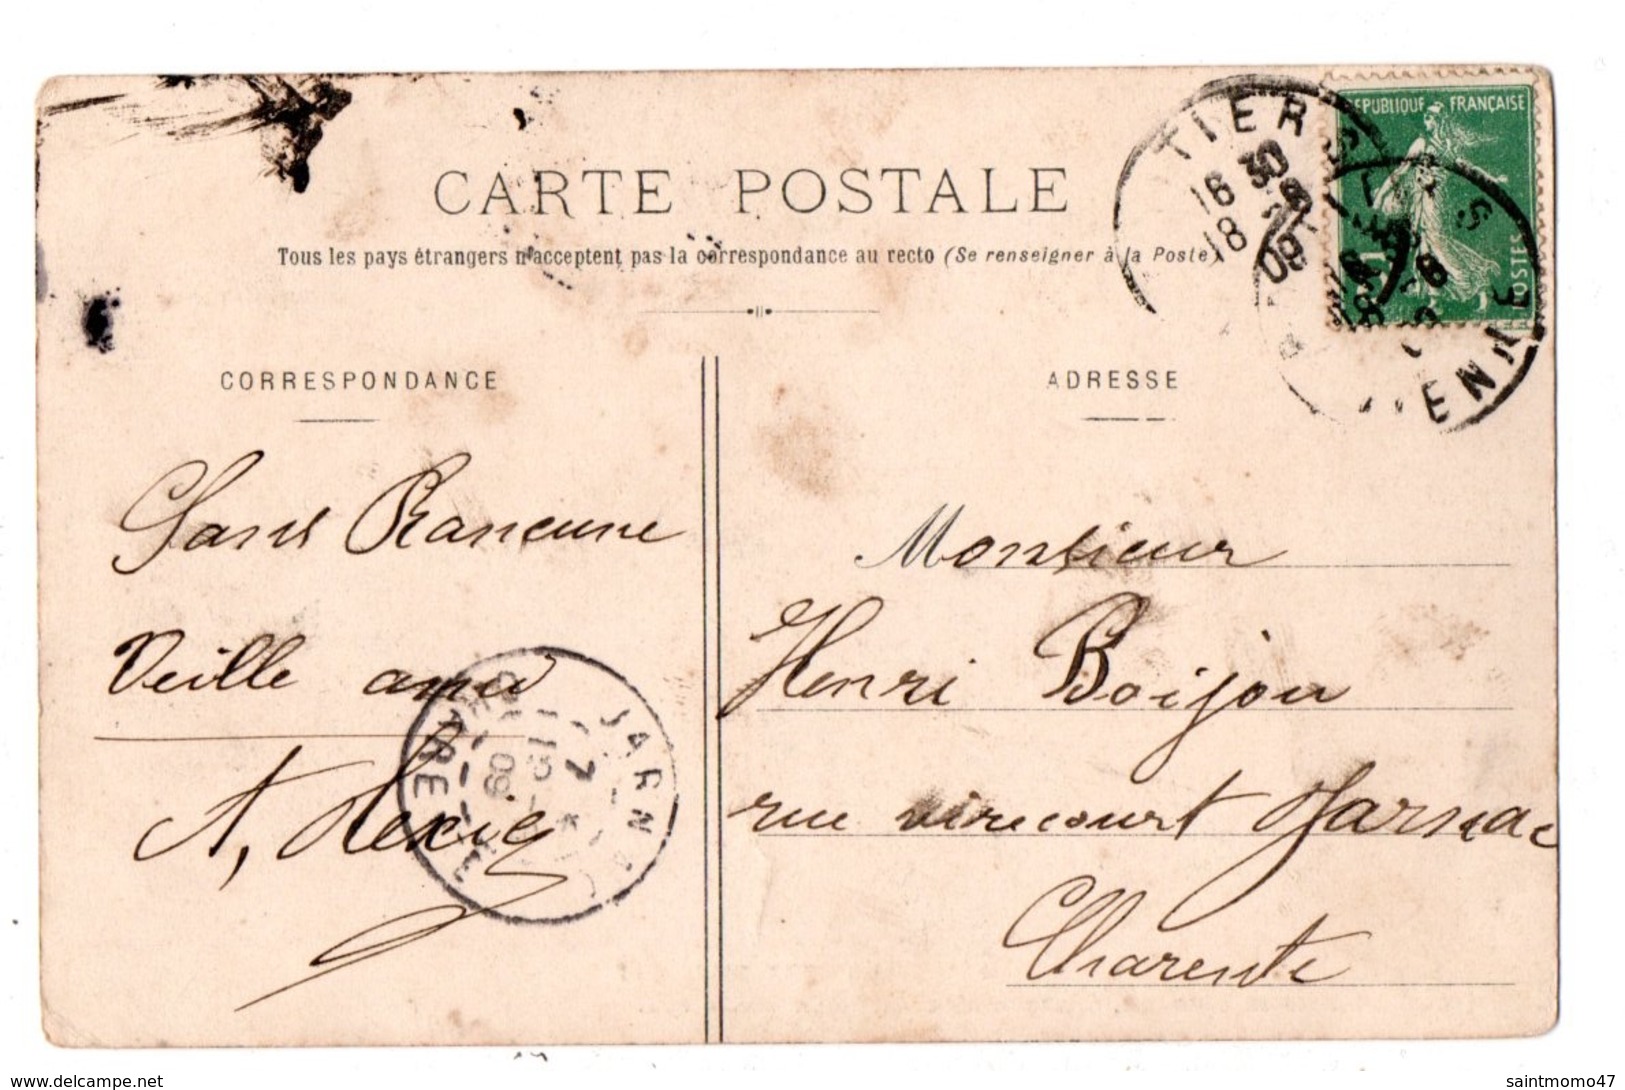 CARTE POSTALE
Tous les pays étrangers n'acceptent pas la correspondance au recto (Se renseigner à la Poste)
REPUBLIQUE FRANÇAISE
POSTES
TIERS
16 30
18
09
CORRESPONDANCE
Sans Rancune
Veille
A,
JARNAC
CHARENTE
7
09
ADRESSE
Monsieur
Henri Boijou
rue virecourt Jarnac
Charente
www.delcampe.net
saintmomo47